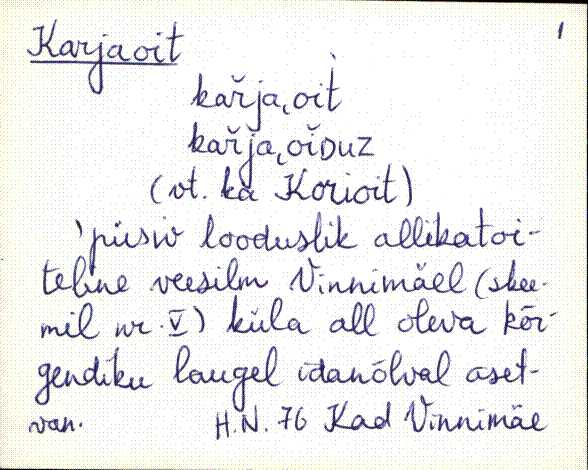 Karjaoit 1
kaŕja,oit̀
kaŕja,oiDuz
(vt. ka Korioit)
'püsiv looduslik allikatoi-
teline veesilm Vinnimäel (skee-
mil nr. V) küla all oleva kõr-
gendiku laugel idanõlval aset-
van. H.N. 76 Kad Vinnimäe